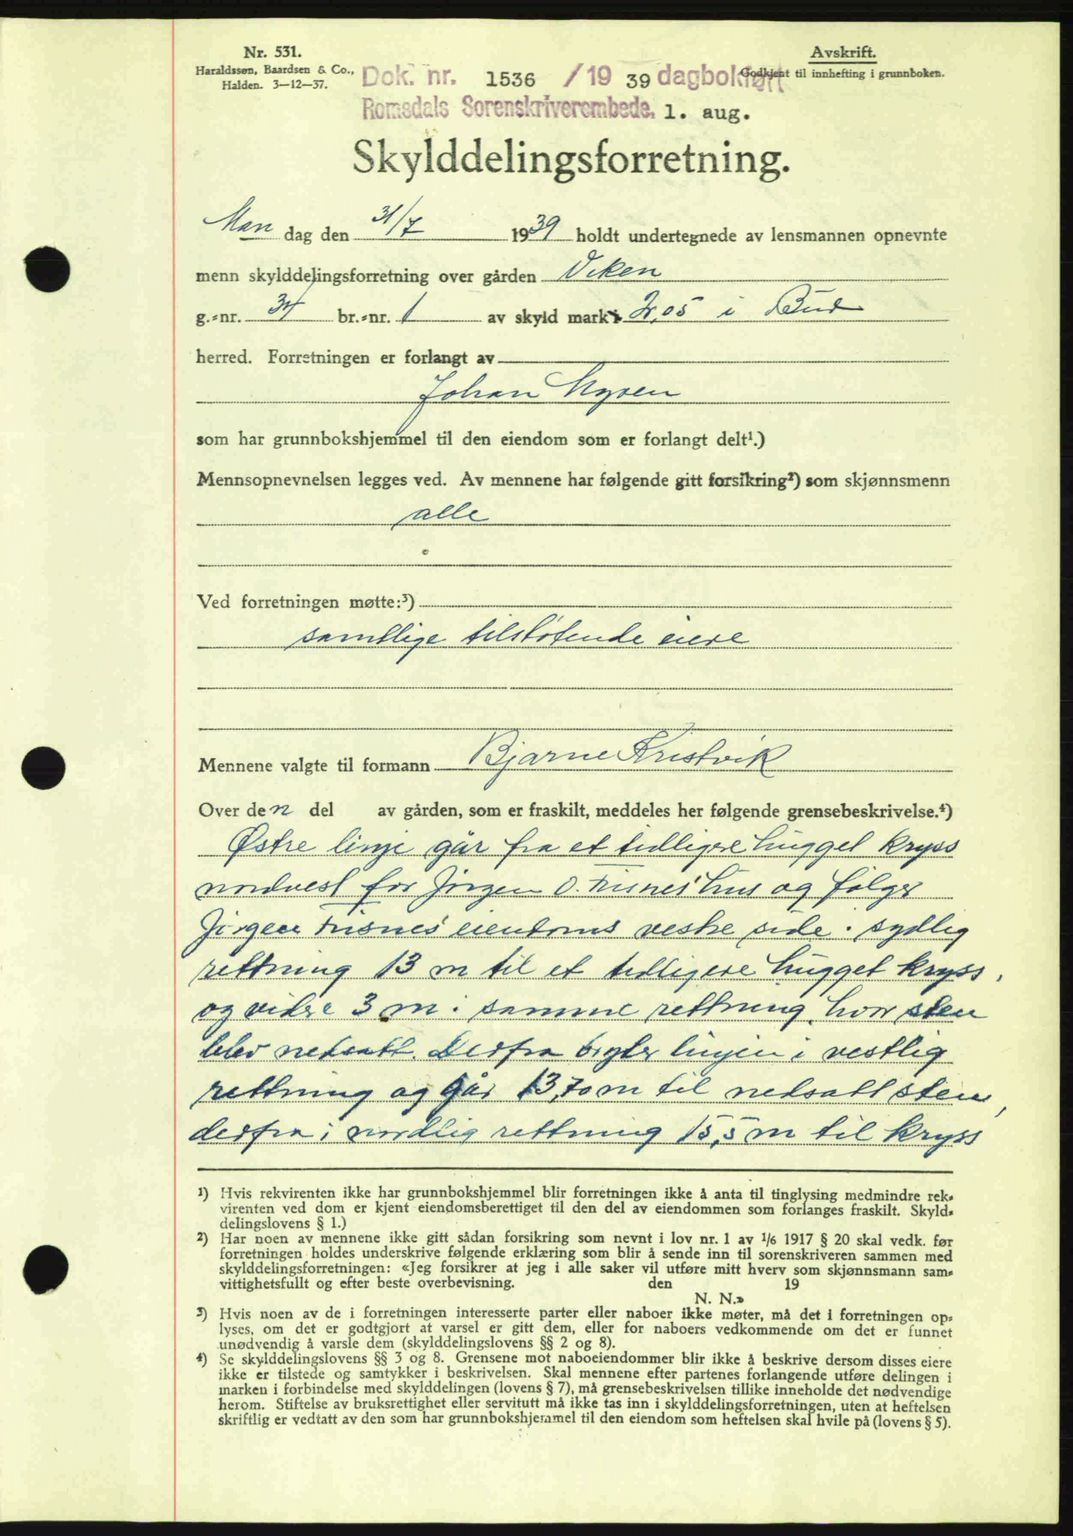 Nr. 531.
Haraldssøn, Baardsen & Co.,
Halden. 3—12—37.
Avskrift.
Godkjent til innhefting i grunnboken.
Dok. nr. 1536 /19 39 dagbokført
Romsdals Sorenskriverembede. 1. aug.
Skylddelingsforretning.
Man dag den 31/7 1939 holdt undertegnede av lensmannen opnevnte
menn skylddelingsforretning over gården Viken
g.-nr. 34 br.-nr. 1 av skyld mark 2,05 i Bud
herred. Forretningen er forlangt av
Johan
som har grunnbokshjemmel til den eiendom som er forlangt delt¹.)
Mennsopnevnelsen legges ved. Av mennene har følgende gitt forsikring²) som skjønnsmenn
alle
Ved forretningen møtte:³)
samtlige tilstøtende eiere
Mennene valgte til formann Bjarne Kristvik
Over den del av gården, som er fraskilt, meddeles her følgende grensebeskrivelse.⁴)
Østre linje går fra et tidligere hugget kryss
nordvest for Jørgen O. hus og følger
Jørgen eiendoms vestre side i sydlig
rettning 13 m til et tidligere hugget kryss,
og videre 3 m i samme rettning, hvor sten
blev nedsatt. Derfra bryter linjen i vestlig
rettning og går 13,70 m til nedsatt sten,
derfra i nordlig rettning 15,5 m til kryss
¹) Hvis rekvirenten ikke har grunnbokshjemmel blir forretningen ikke å anta til tinglysing medmindre rek-
virenten ved dom er kjent eiendomsberettiget til den del av eiendommen som forlanges fraskilt. Skyld-
delingslovens § 1.)
²) Har noen av mennene ikke gitt sådan forsikring som nevnt i lov nr. 1 av 1/6 1917 § 20 skal vedk. før
forretningen holdes underskrive følgende erklæring som blir å sende inn til sorenskriveren sammen med
skylddelingsforretningen: «Jeg forsikrer at jeg i alle saker vil utføre mitt hverv som skjønnsmann sam-
vittighetsfullt og efter beste overbevisning. den 19
N. N.»
³) Hvis noen av de i forretningen interesserte parter eller naboer ikke møter, må det i forretningen op-
lyses, om det er godtgjort at varsel er gitt dem, eller for naboers vedkommende om det er funnet
unødvendig å varsle dem (skylddelingslovens §§ 2 og 8).
⁴) Se skylddelingslovens §§ 3 og 8. Grensene mot naboeiendommer blir ikke å beskrive dersom disses eiere
ikke er tilstede og samtykker i beskrivelsen. Skal mennene efter partenes forlangende utføre delingen i
marken i forbindelse med skylddelingen (lovens § 7), må grensebeskrivelsen tillike inneholde det nødvendige
herom. Stiftelse av bruksrettighet eller servitutt må ikke tas inn i skylddelingsforretningen, uten at heftelsen
skriftlig er vedtatt av den som har grunnbokshjemmel til den eiendom som heftelsen skal hvile på (lovens § 5).